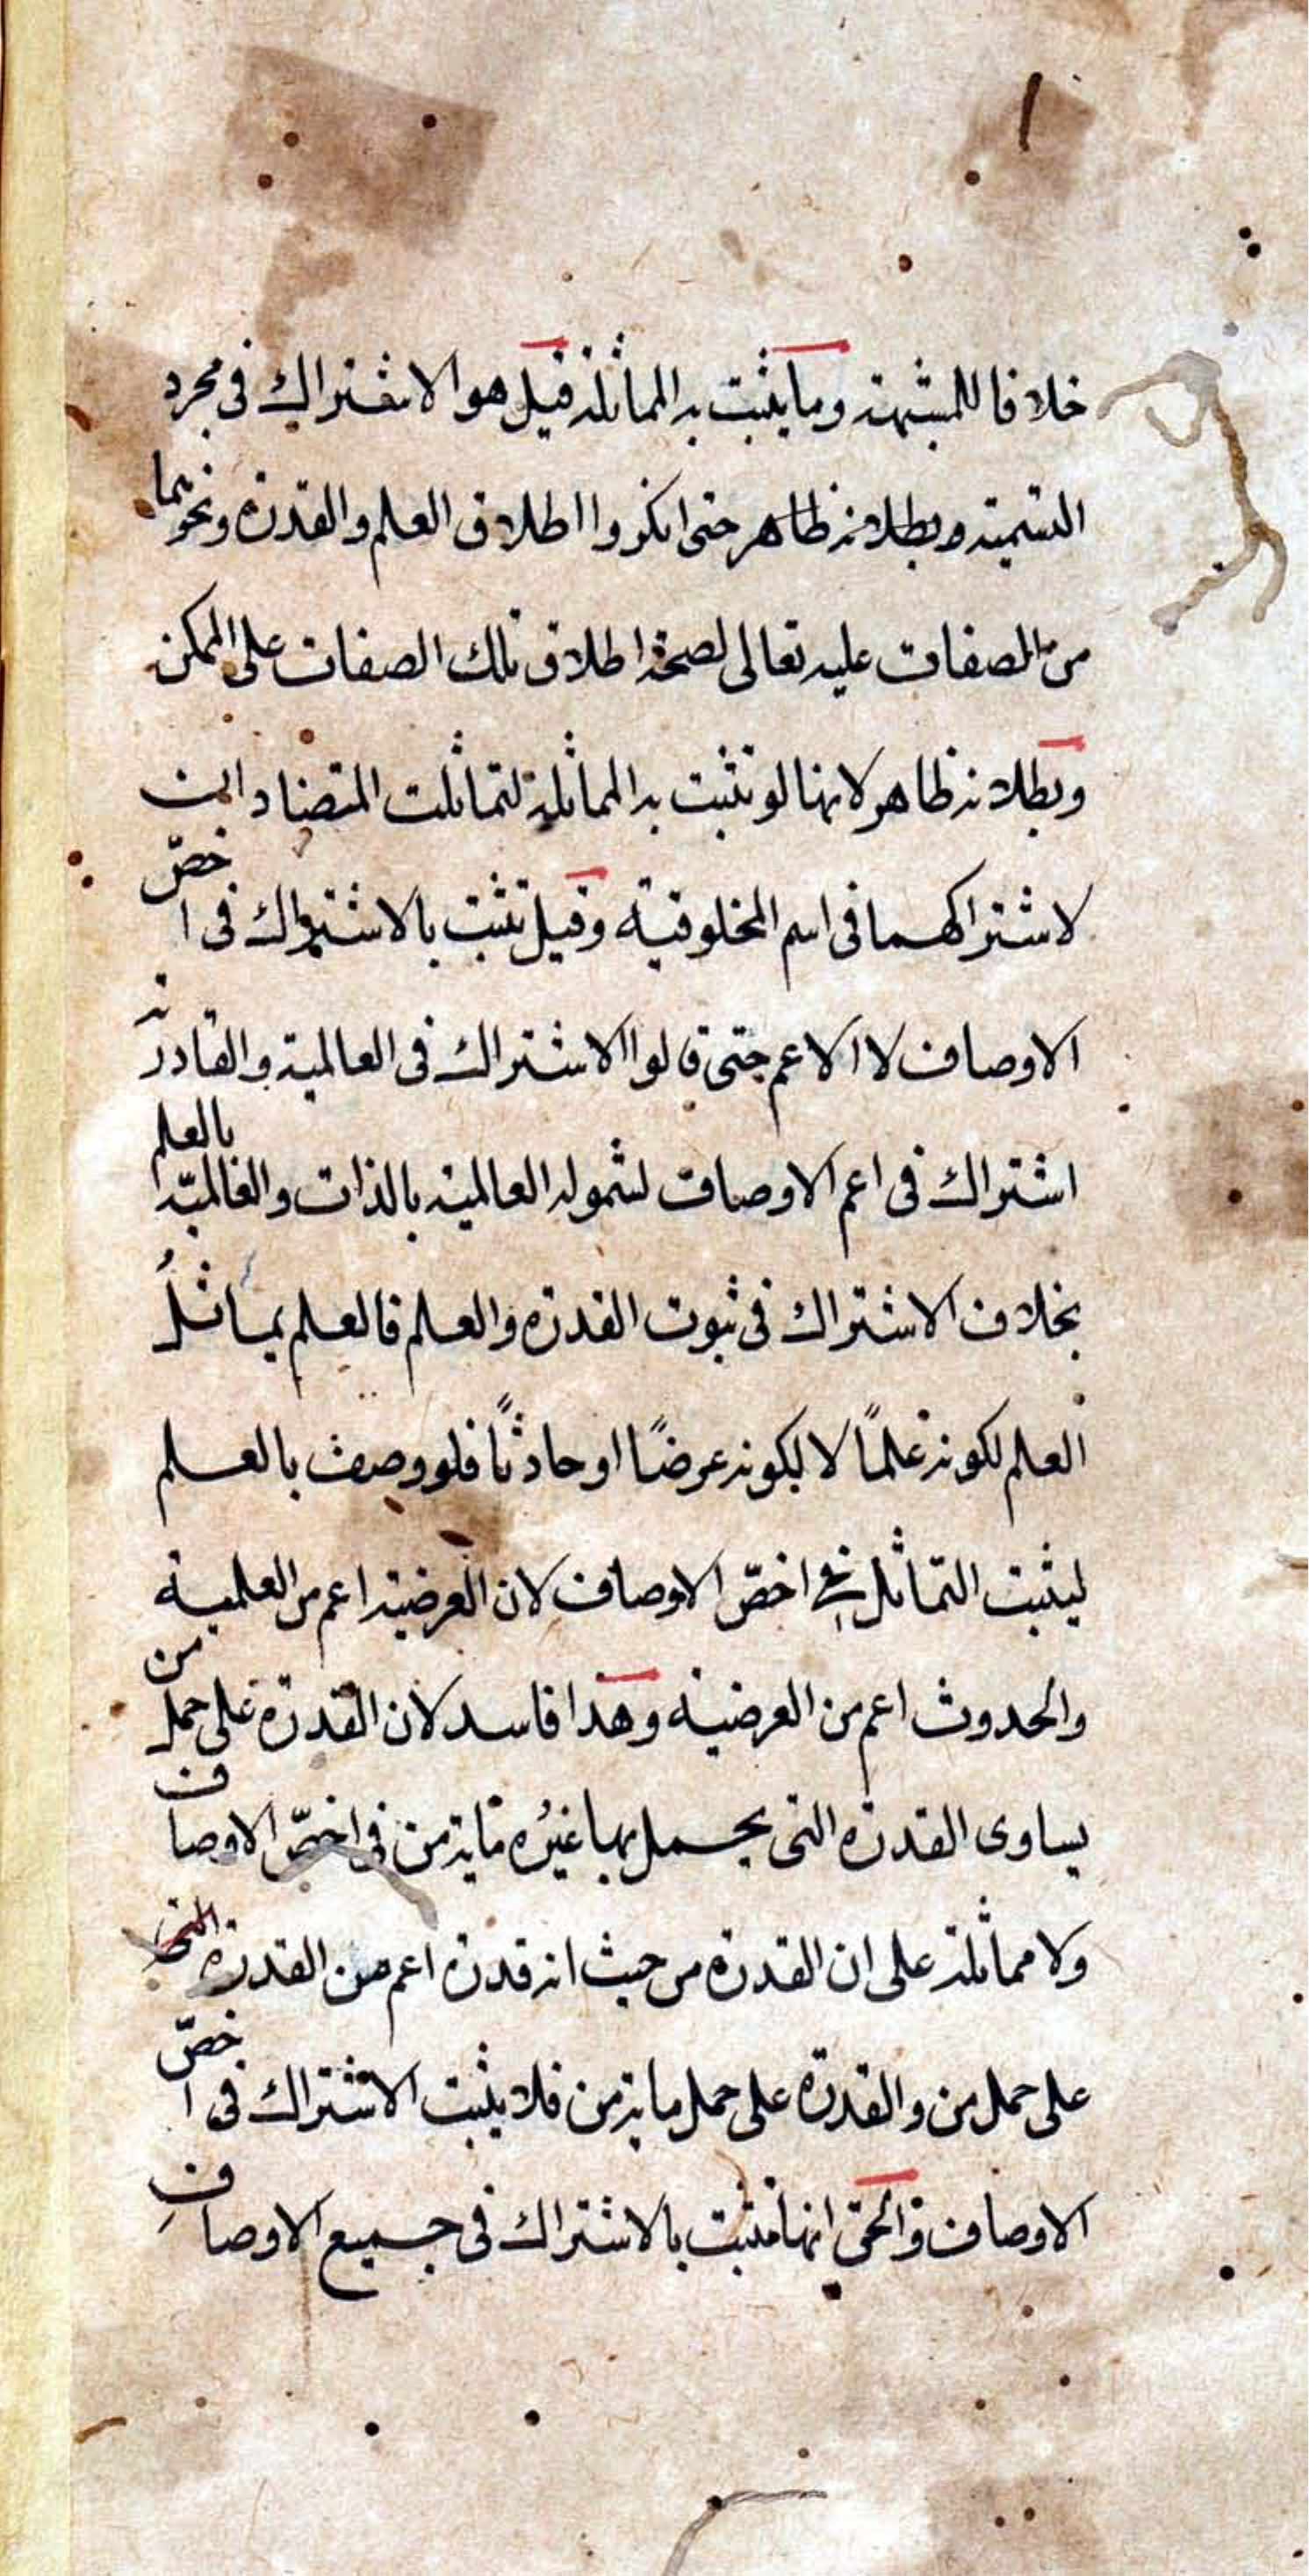 خلافا للمشبهة وما يثبت به المماثلة قيل هو الاشتراك فى مجرد
التسمية وبطلانه ظاهر حتى انكروا اطلاق العلم والقدرة ونحوهما
من الصفات عليه تعالى لصحة اطلاق تلك الصفات على الممكن
وبطلانه ظاهر لانها لو تثبت به المماثلة لتماثلت المتضادات
لاشتراكهما فى اسم المخلوقية وقيل تثبت بالاشتراك فى اخصّ
الاوصاف لا الاعم حتى قالوا الاشتراك فى العالمية والقادرية
اشتراك فى اعم الاوصاف لشموله العالمية بالذات والعالميّة بالعلم
بخلاف الاشتراك فى ثبوت القدرة والعلم فالعلم يماثلُ
العلم لكونه علمًا لا لكونه عرضًا او حادثًا فلو وصف بالعلم
ليثبت التماثل فى اخصّ الاوصاف لان العرضية اعم من العلمية
والحدوث اعم من العرضية وهذا فاسد لان القدرة على حمل من
يساوى القدرة التى يحمل بها غيرُه ماية من فى اخصّ الاوصاف
ولا مماثلة على ان القدرة من حيث انه قدرة اعم من القدرة التى
على حمل من والقدرة على حمل ماية من فلا يثبت الاشتراك فى اخصّ
الاوصاف والحق انها تثبت بالاشتراك فى جميع الاوصاف